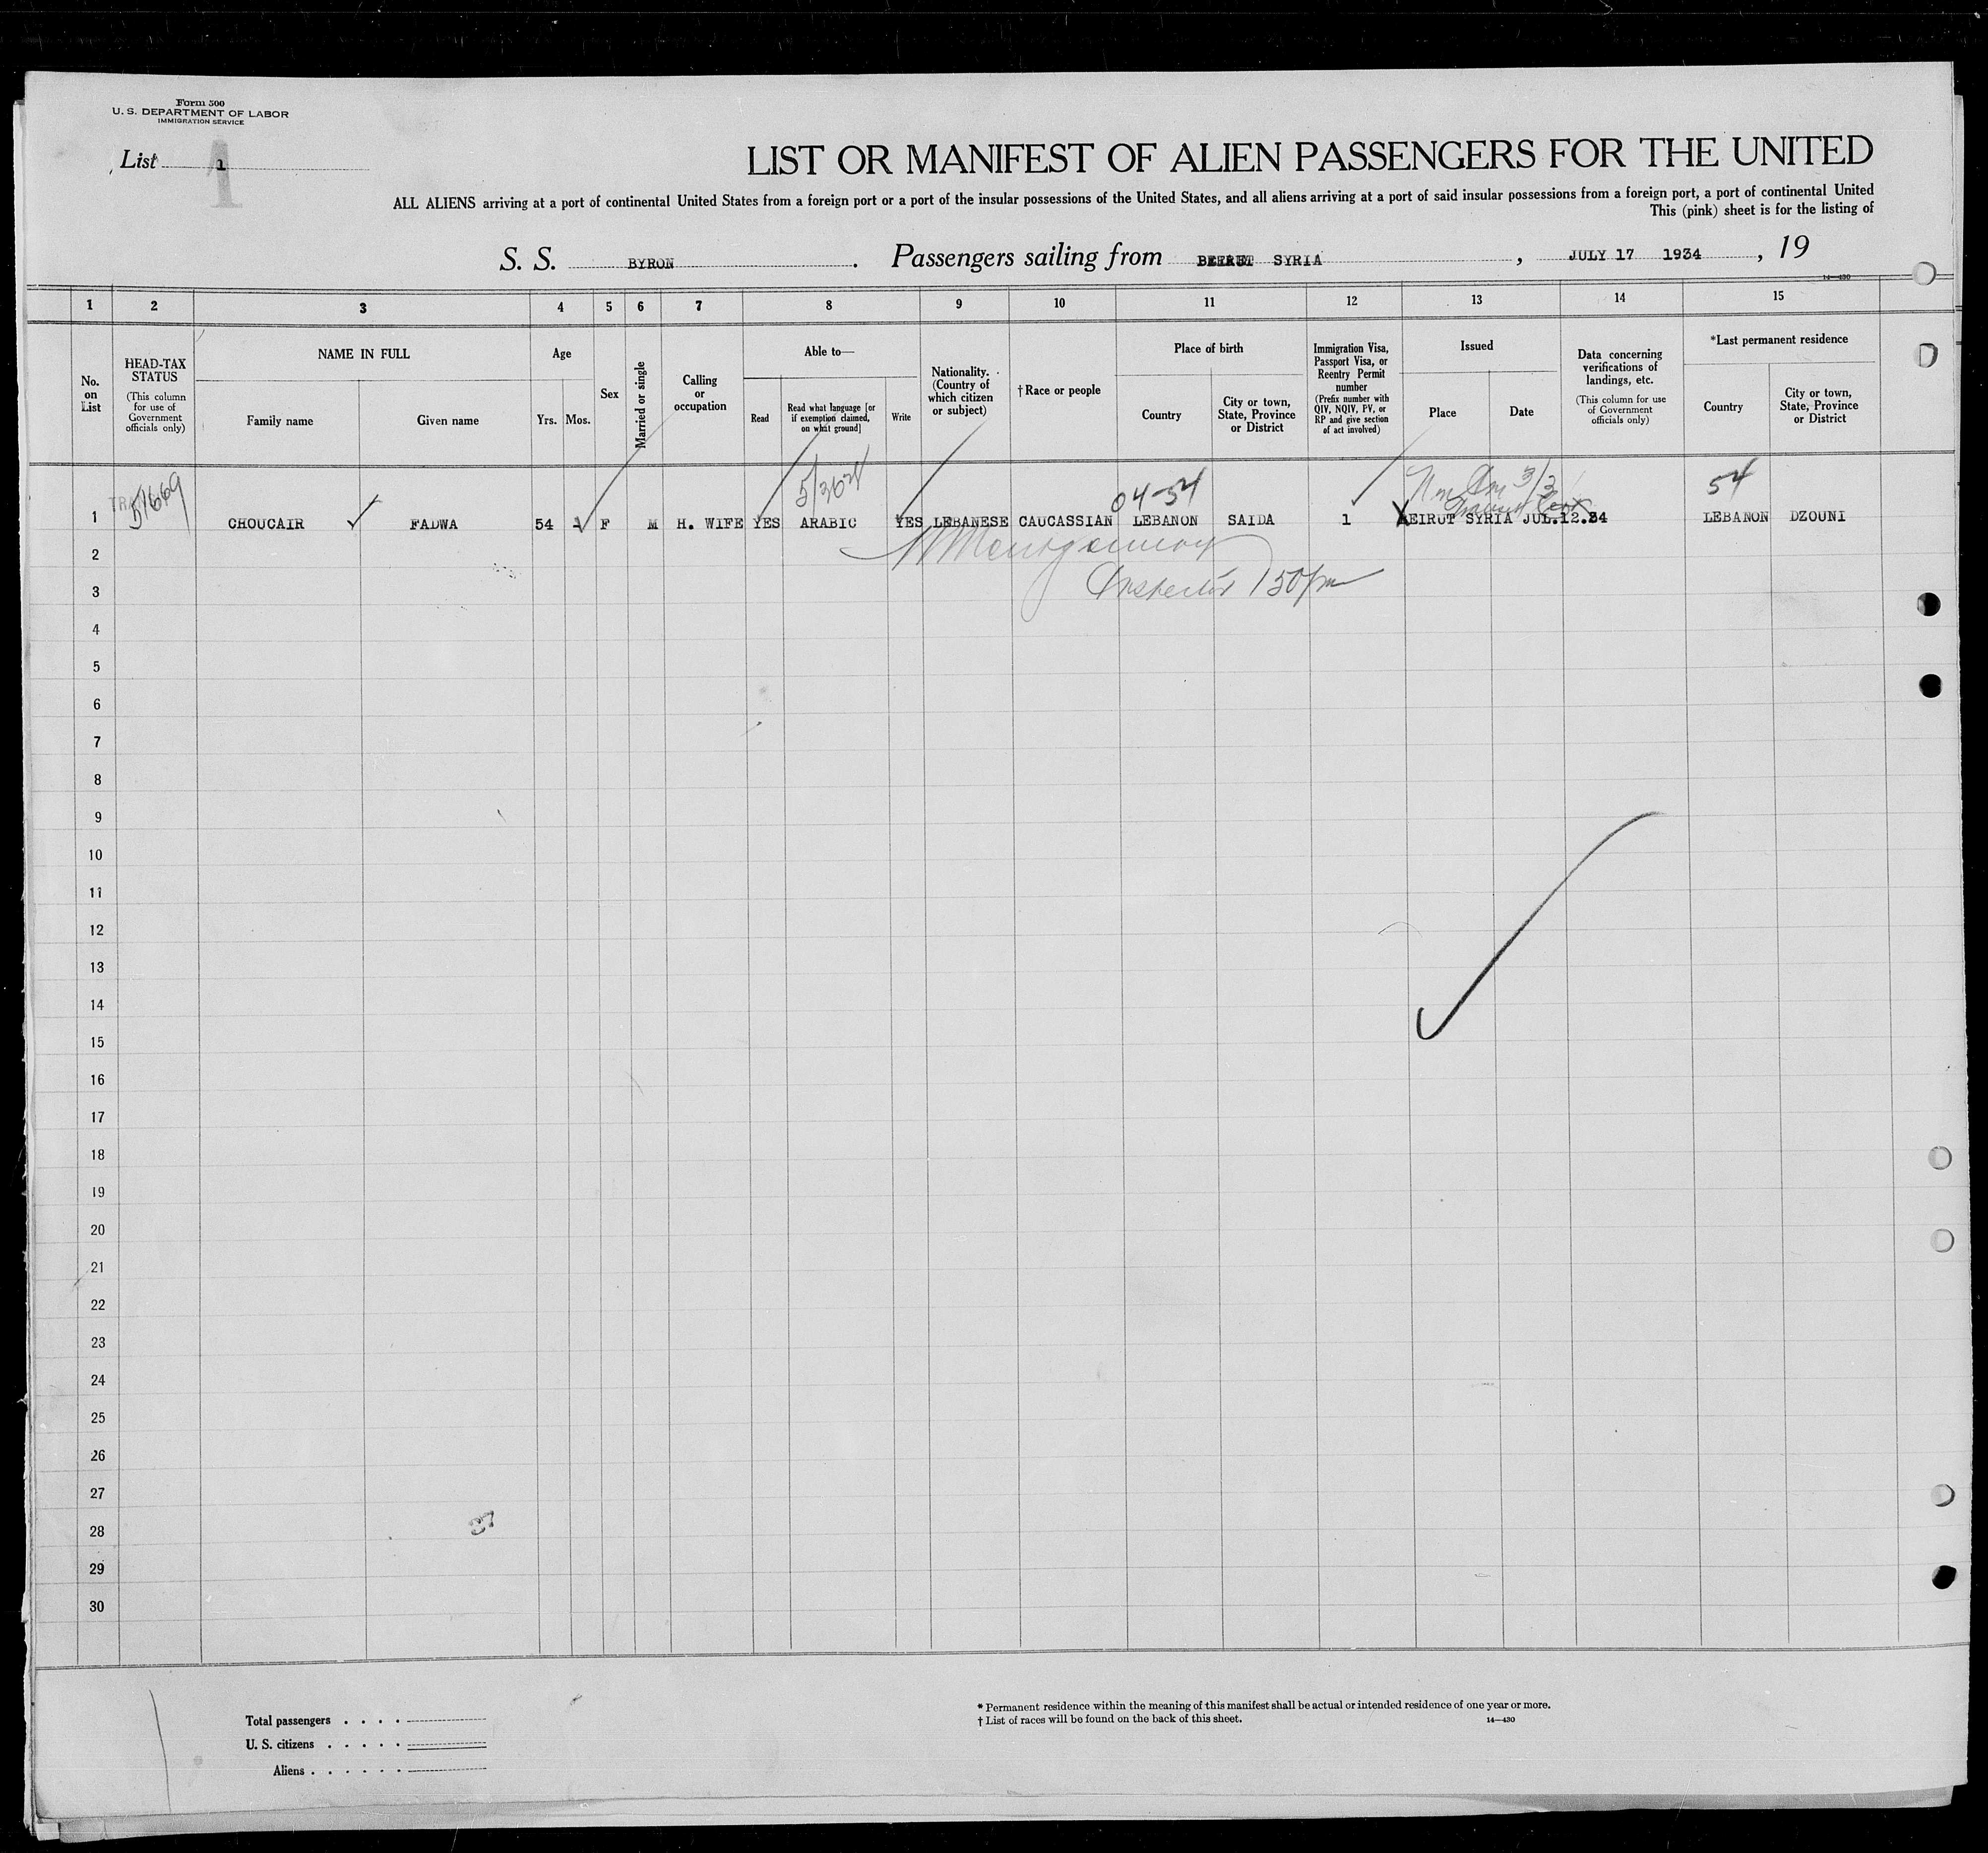 Form 500
U. S. DEPARTMENT OF LABOR
IMMIGRATION SERVICE
List 1
1
LIST OR MANIFEST OF ALIEN PASSENGERS FOR THE UNITED
ALL ALIENS arriving at a port of continental United States from a foreign port or a port of the insular possessions of the United States, and all aliens arriving at a port of said insular possessions from a foreign port, a port of continental United
This (pink) sheet is for the listing of
S. S. BYRON. Passengers sailing from SYRIA, JULY 17 1934, 19
14—430
1 2 3 4 5 6 7 8 9 10 11 12 13 14 15
No. on List
HEAD-TAX STATUS
(This column for use of Government officials only)
NAME IN FULL
Family name
Given name
Age
Yrs.
Mos.
Sex
Married or single
Calling or occupation
Able to—
Read
Read what language [or if exemption claimed, on what ground]
Write
Nationality. (Country of which citizen or subject)
†Race or people
Place of birth
Country
City or town, State, Province or District
Immigration Visa, Passport Visa, or Reentry Permit number
(Prefix number with QIV, NQIV, PV, or RP and give section of act involved)
Issued
Place
Date
Data concerning verifications of landings, etc.
(This column for use of Government officials only)
*Last permanent residence
Country
City or town, State, Province or District
51669
5/3024
04-54
3/3
54
1 CHOUCAIR FADWA 54 F M H. WIFE YES ARABIC YES LEBANESE CAUCASSIAN LEBANON SAIDA 1 BEIRUT SYRIA JUL.12.34 LEBANON DZOUNI
Montgomery
Inspector 150pm
2
3
4
5
6
7
8
9
10
11
12
13
14
15
16
17
18
19
20
21
22
23
24
25
26
27
37
28
29
30
Total passengers . . . .
U. S. citizens . . . . .
Aliens . . . . . .
* Permanent residence within the meaning of this manifest shall be actual or intended residence of one year or more.
† List of races will be found on the back of this sheet.
14—430